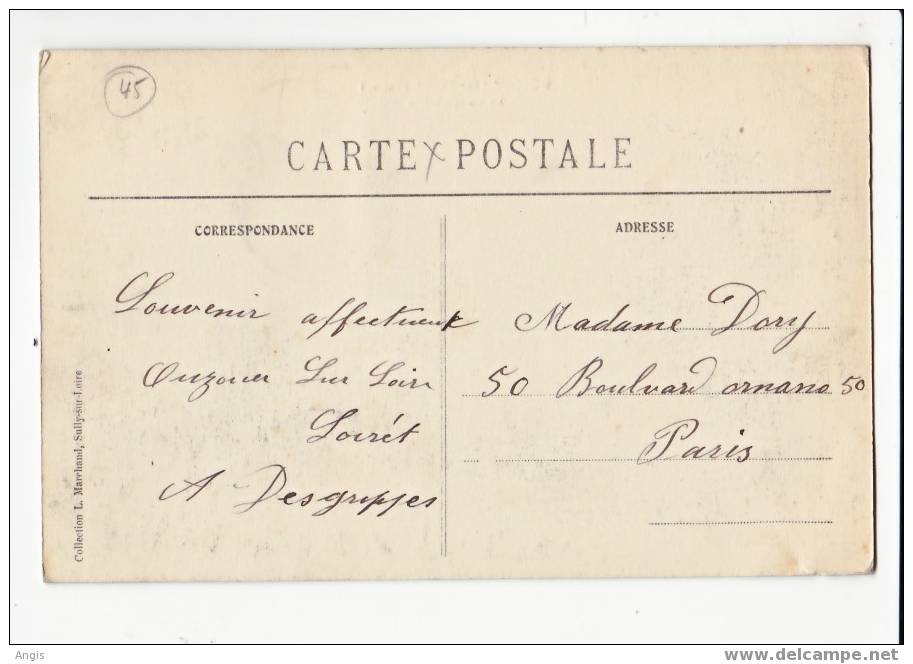 45
CARTE POSTALE
CORRESPONDANCE
Souvenir affectueux
Ouzouer Sur Loire
Loirét
A Desgruppes
ADRESSE
Madame Dory
50 Boulvard ornano 50
Paris
Collection L. Marchand, Sully-sur-Loire
Angis
www.delcampe.net